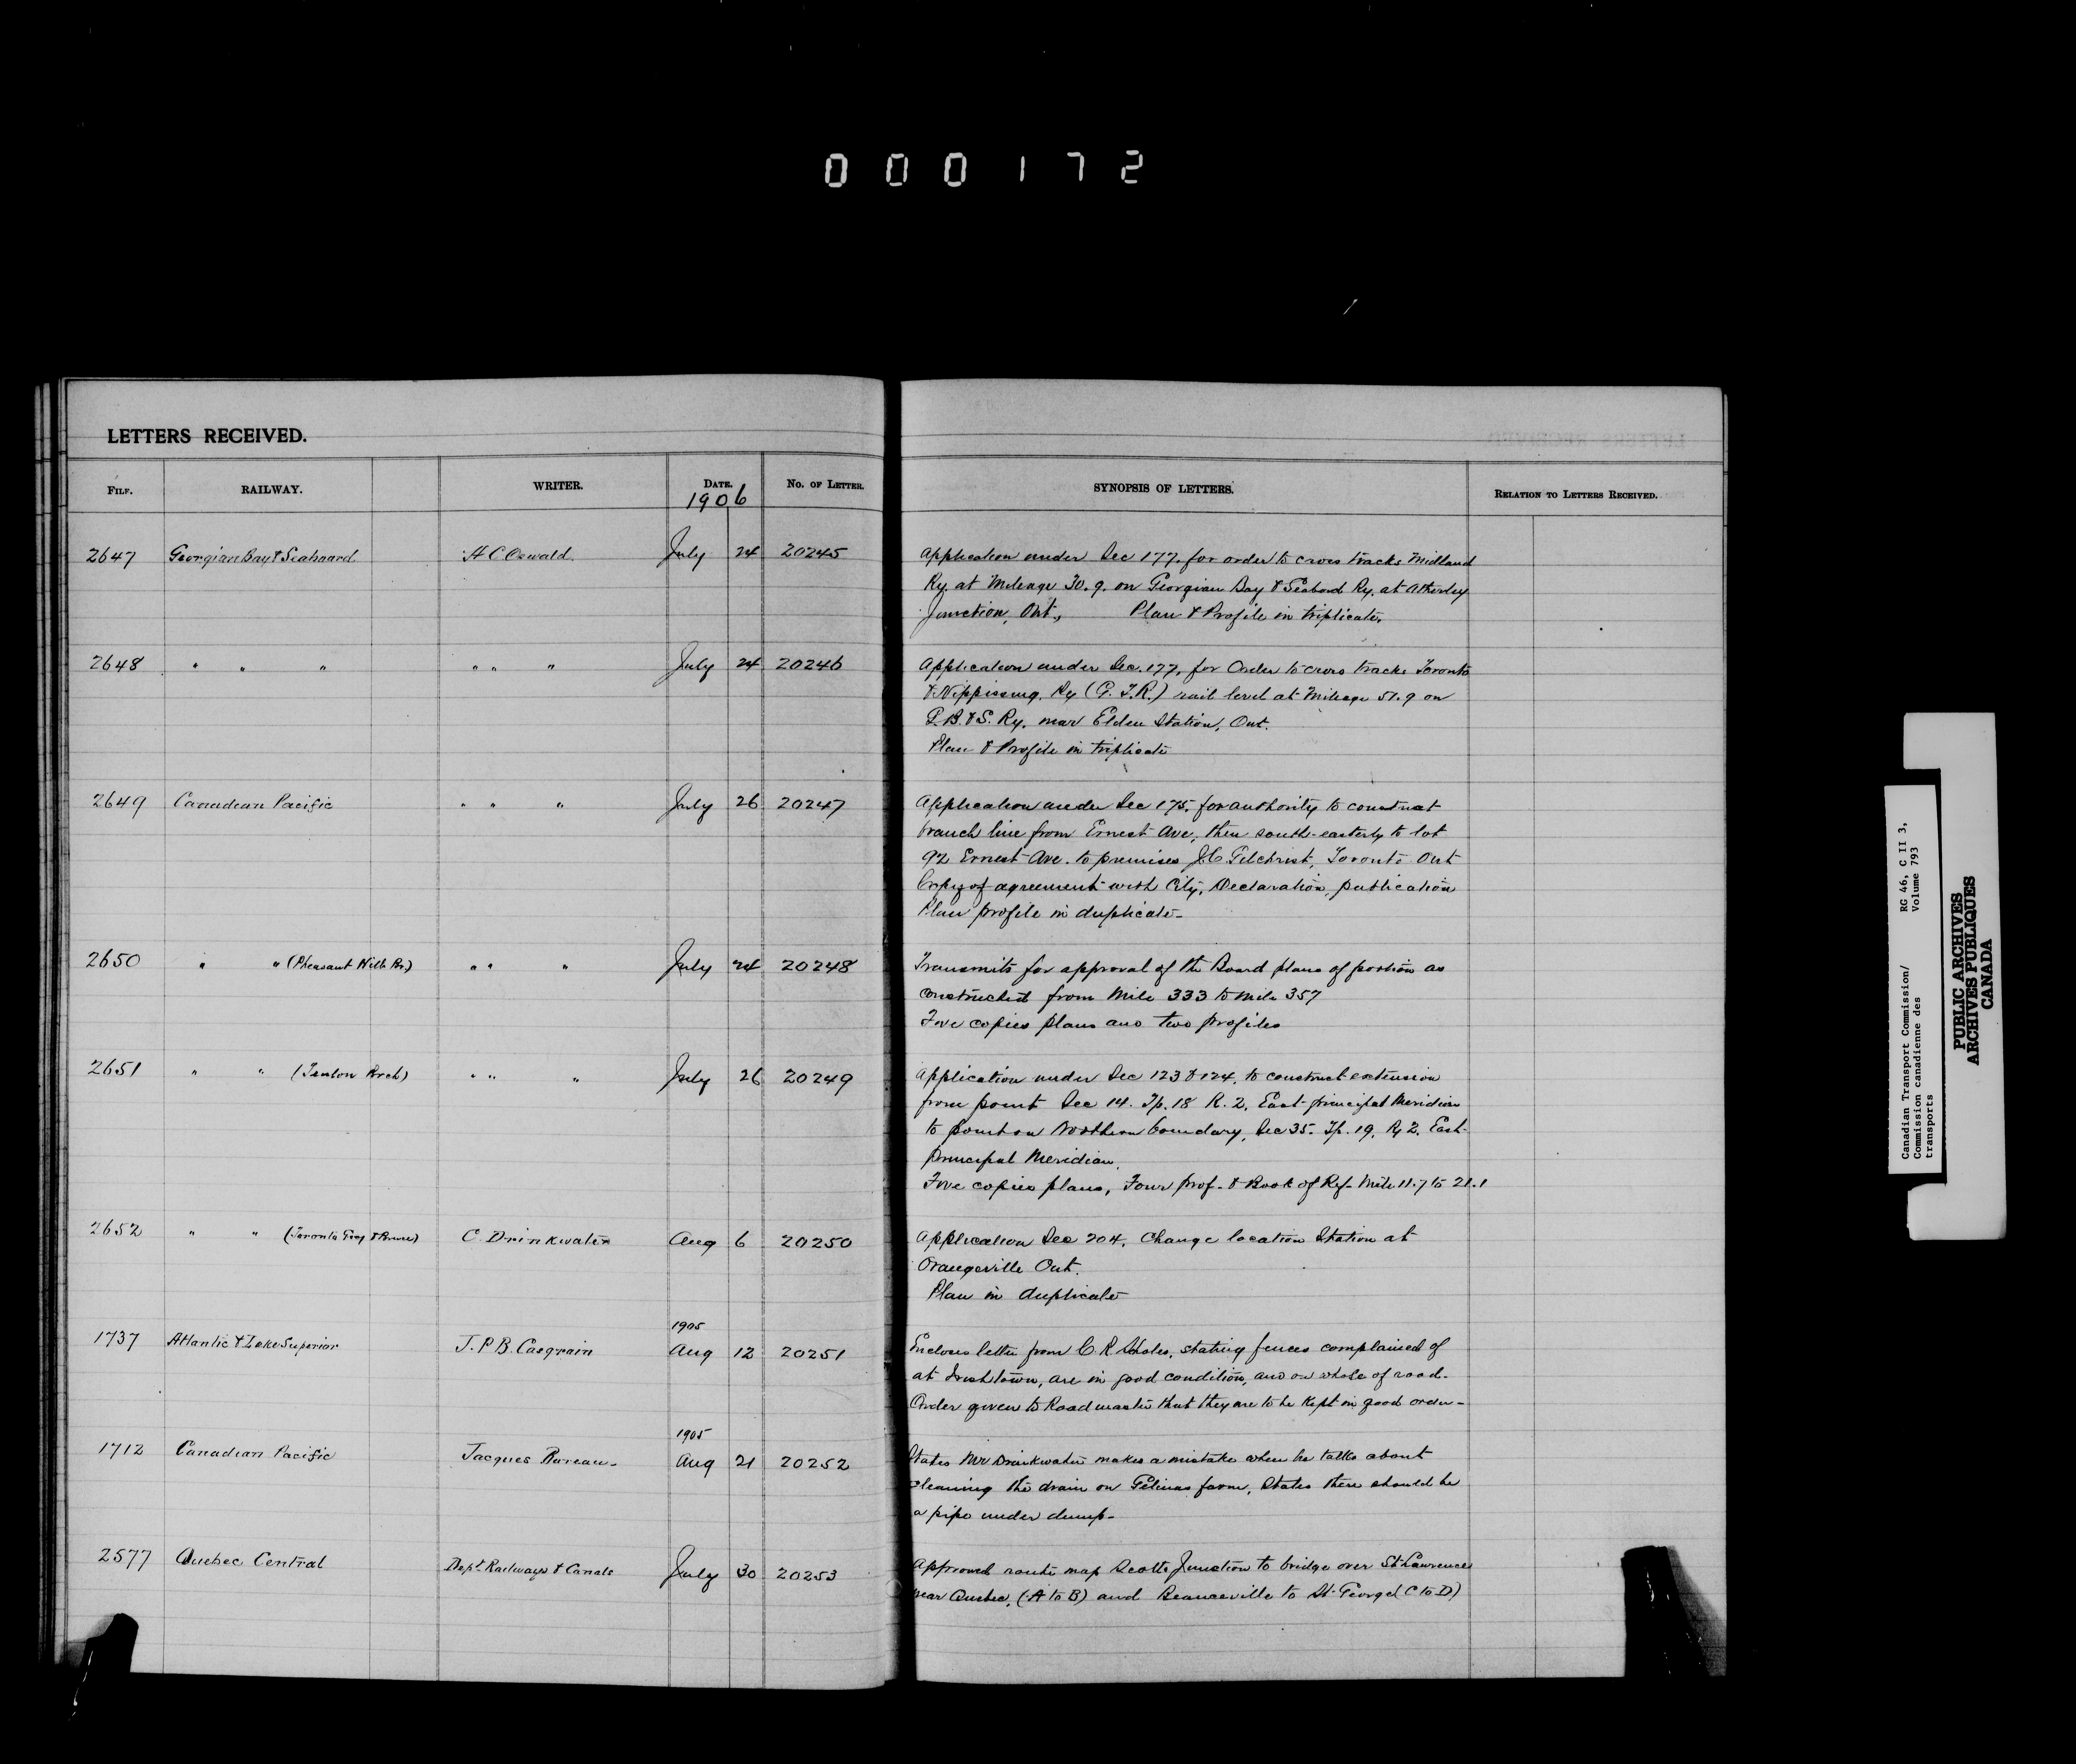 000172
LETTERS RECEIVED.
FILE. RAILWAY. WRITER. DATE. No. OF LETTER. SYNOPSIS OF LETTERS. RELATION TO LETTERS RECEIVED.
1906
2647 Georgian Bay & Seaboard H C Oswald July 24 20245 Application under Sec 177, for order to cross tracks Midland
Ry. at Mileage 30.9. on Georgian Bay & Seabord Ry. at Atherley
Junction, Ont., Plan & Profile in triplicate.
2648 " " " " " " July 24 20246 Application under Sec. 177, for Order to cross tracks Toronto
& Nippissing Ry (G. T. R.) rail level at Mileage 51.9 on
G. B. & S. Ry. near Elden Station, Ont.
Plan & Profile in triplicate
2649 Canadian Pacific " " " July 26 20247 Application under Sec 175, for authority to construct
branch line from Ernest Ave, then south-easterly to lot
92 Ernest Ave. to premises J.C. Gilchrist, Toronto Ont
Copy of agreement with City, Declaration, publication
Plan profile in duplicate-
2650 " " (Pheasant Hills Br.) " " " July 24 20248 Transmits for approval of the Board plans of portion as
constructed from Mile 333 to Mile 357
Five copies plans and two profiles
2651 " " (Teulon Brch) " " " July 26 20249 Application under Sec 123 & 124, to construct extension
from point Sec 14. Tp. 18 R. 2, East principal Meridian
to point on Northern boundary, Sec 35. Tp. 19, Rg 2. East-
Principal Meridian.
Five copies plans, Four prof- & Book of Ref- Mile 11.7 to 21.1
2652 " " (Toronto Grey & Bruce) C. Drinkwater Aug 6 20250 Application Sec 204, Change location Station at
Orangeville Ont.
Plan in duplicate
1905
1737 Atlantic & Lake Superior J. P. B. Casgrain Aug 12 20251 Encloses letter from C. R. Scoles, stating fences complained of
at Irishtown, are in good condition, and on whole of road-
Order given to Roadmaster that they are to be kept in good order-
1905
1712 Canadian Pacific Jacques Bureau- Aug 21 20252 States Mr Drinkwater makes a mistake when he talks about
cleaning the drain on Gelinas farm, States there should be
a pipe under dump-
2577 Quebec Central Dept Railways & Canals July 30 20253 Approved route map Scotts Junction to bridge over St Lawrence
near Quebec, (A to B) and Beauceville to St-George (C to D)
RG 46, C II 3,
Volume 793
Canadian Transport Commission/
Commission canadienne des
transports
PUBLIC ARCHIVES
ARCHIVES PUBLIQUES
CANADA